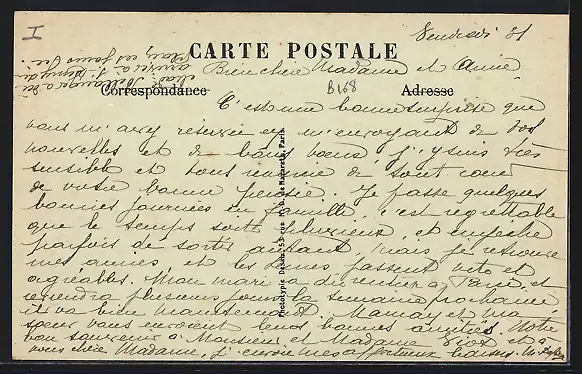 I
Vendredi 31
CARTE POSTALE
Bien chère Madame et Amie
B168
Correspondance
Adresse
C'est une bonne surprise que
vous m'avez réservée en m'envoyant de vos
nouvelles et de bons vœux, j'y suis très
sensible et vous remercie de tout cœur
de votre bonne pensée. Je passe quelques
bonnes journées en famille, c'est regrettable
que le temps soit pluvieux, et empêche
parfois de sortir autant, mais je retrouve
mes amies et les heures passent vite et
agréables. Mon mari a du rentrer à Paris, et
reviendra plusieurs jours la semaine prochaine
il va bien maintenant. Maman et ma
sœur vous envoient leurs bonnes amitiés. Notre
bon souvenir à Monsieur et Madame et à
vous chère Madame, j'envoie mes affectueux baisers.
Phototypie Desaix, 53 rue N.-D. de Nazareth, Paris